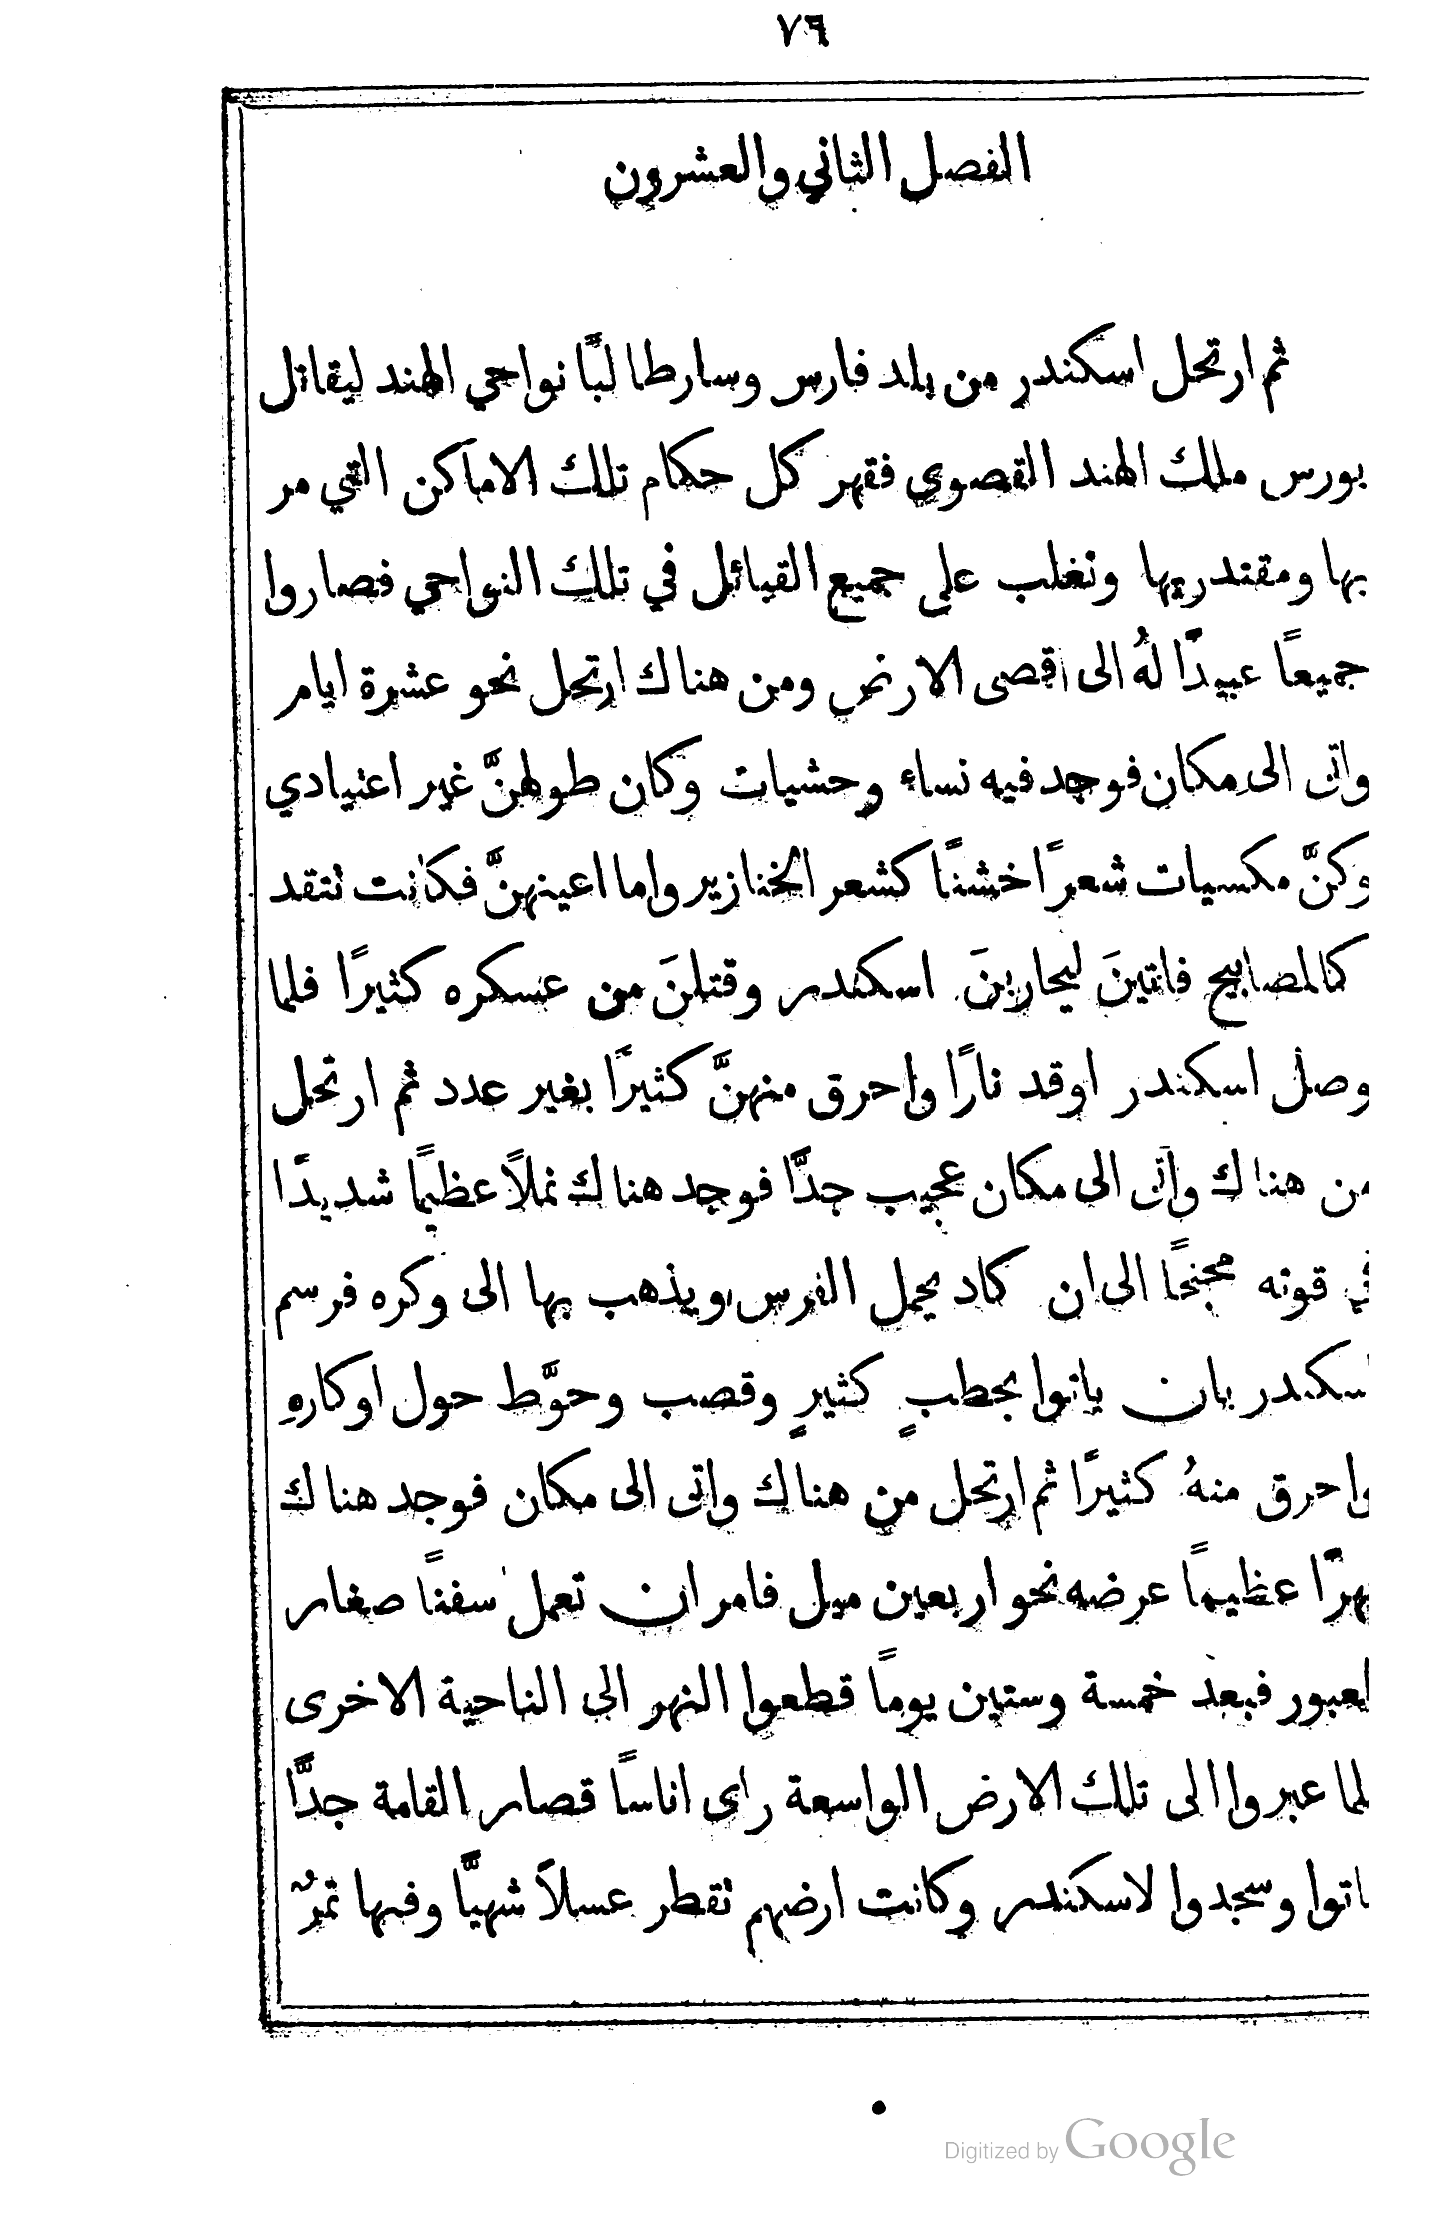 ٧٦
الفصل الثاني والعشرون
ثم ارتحل اسكندر من بلد فارس وسار طالبًا نواحي الهند ليقاتل
بورس ملك الهند القصوي فقهر كل حكام تلك الاماكن التي مر
بها ومقتدريها وتغلب على جميع القبائل في تلك النواحي فصاروا
جميعًا عبيدًا لهُ الى اقصى الارض ومن هناك ارتحل نحو عشرة ايام
واتى الى مكان فوجد فيه نساء وحشيات وكان طولهنَّ غير اعتيادي
وكنَّ مكسيات شعرًا خشنًا كشعر الخنازير واما اعينهنَّ فكانت تتقد
كالمصابيح فاتينَ ليحاربنَ اسكندر وقتلنَ من عسكره كثيرًا فلما
وصل اسكندر اوقد نارًا واحرق منهنَّ كثيرًا بغير عدد ثم ارتحل
من هناك واتى الى مكان عجيب جدًّا فوجد هناك نملاً عظيمًا شديدًا
في قوته مجنحًا الى ان كاد يحمل الفرس ويذهب بها الى وكره فرسم
اسكندر بان ياتوا بحطبٍ كثيرٍ وقصب وحوَّط حول اوكارهِ
واحرق منهُ كثيرًا ثم ارتحل من هناك واتى الى مكان فوجد هناك
نهرًا عظيمًا عرضه نحو اربعين ميل فامر ان تعمل سفنًا صغار
لعبور فبعد خمسة وستين يومًا قطعوا النهر الى الناحية الاخرى
فلما عبروا الى تلك الارض الواسعة راى اناسًا قصار القامة جدًّا
فاتوا وسجدوا لاسكندر وكانت ارضهم تقطر عسلاً شهيًّا وفيها تمرٌ
Digitized by Google